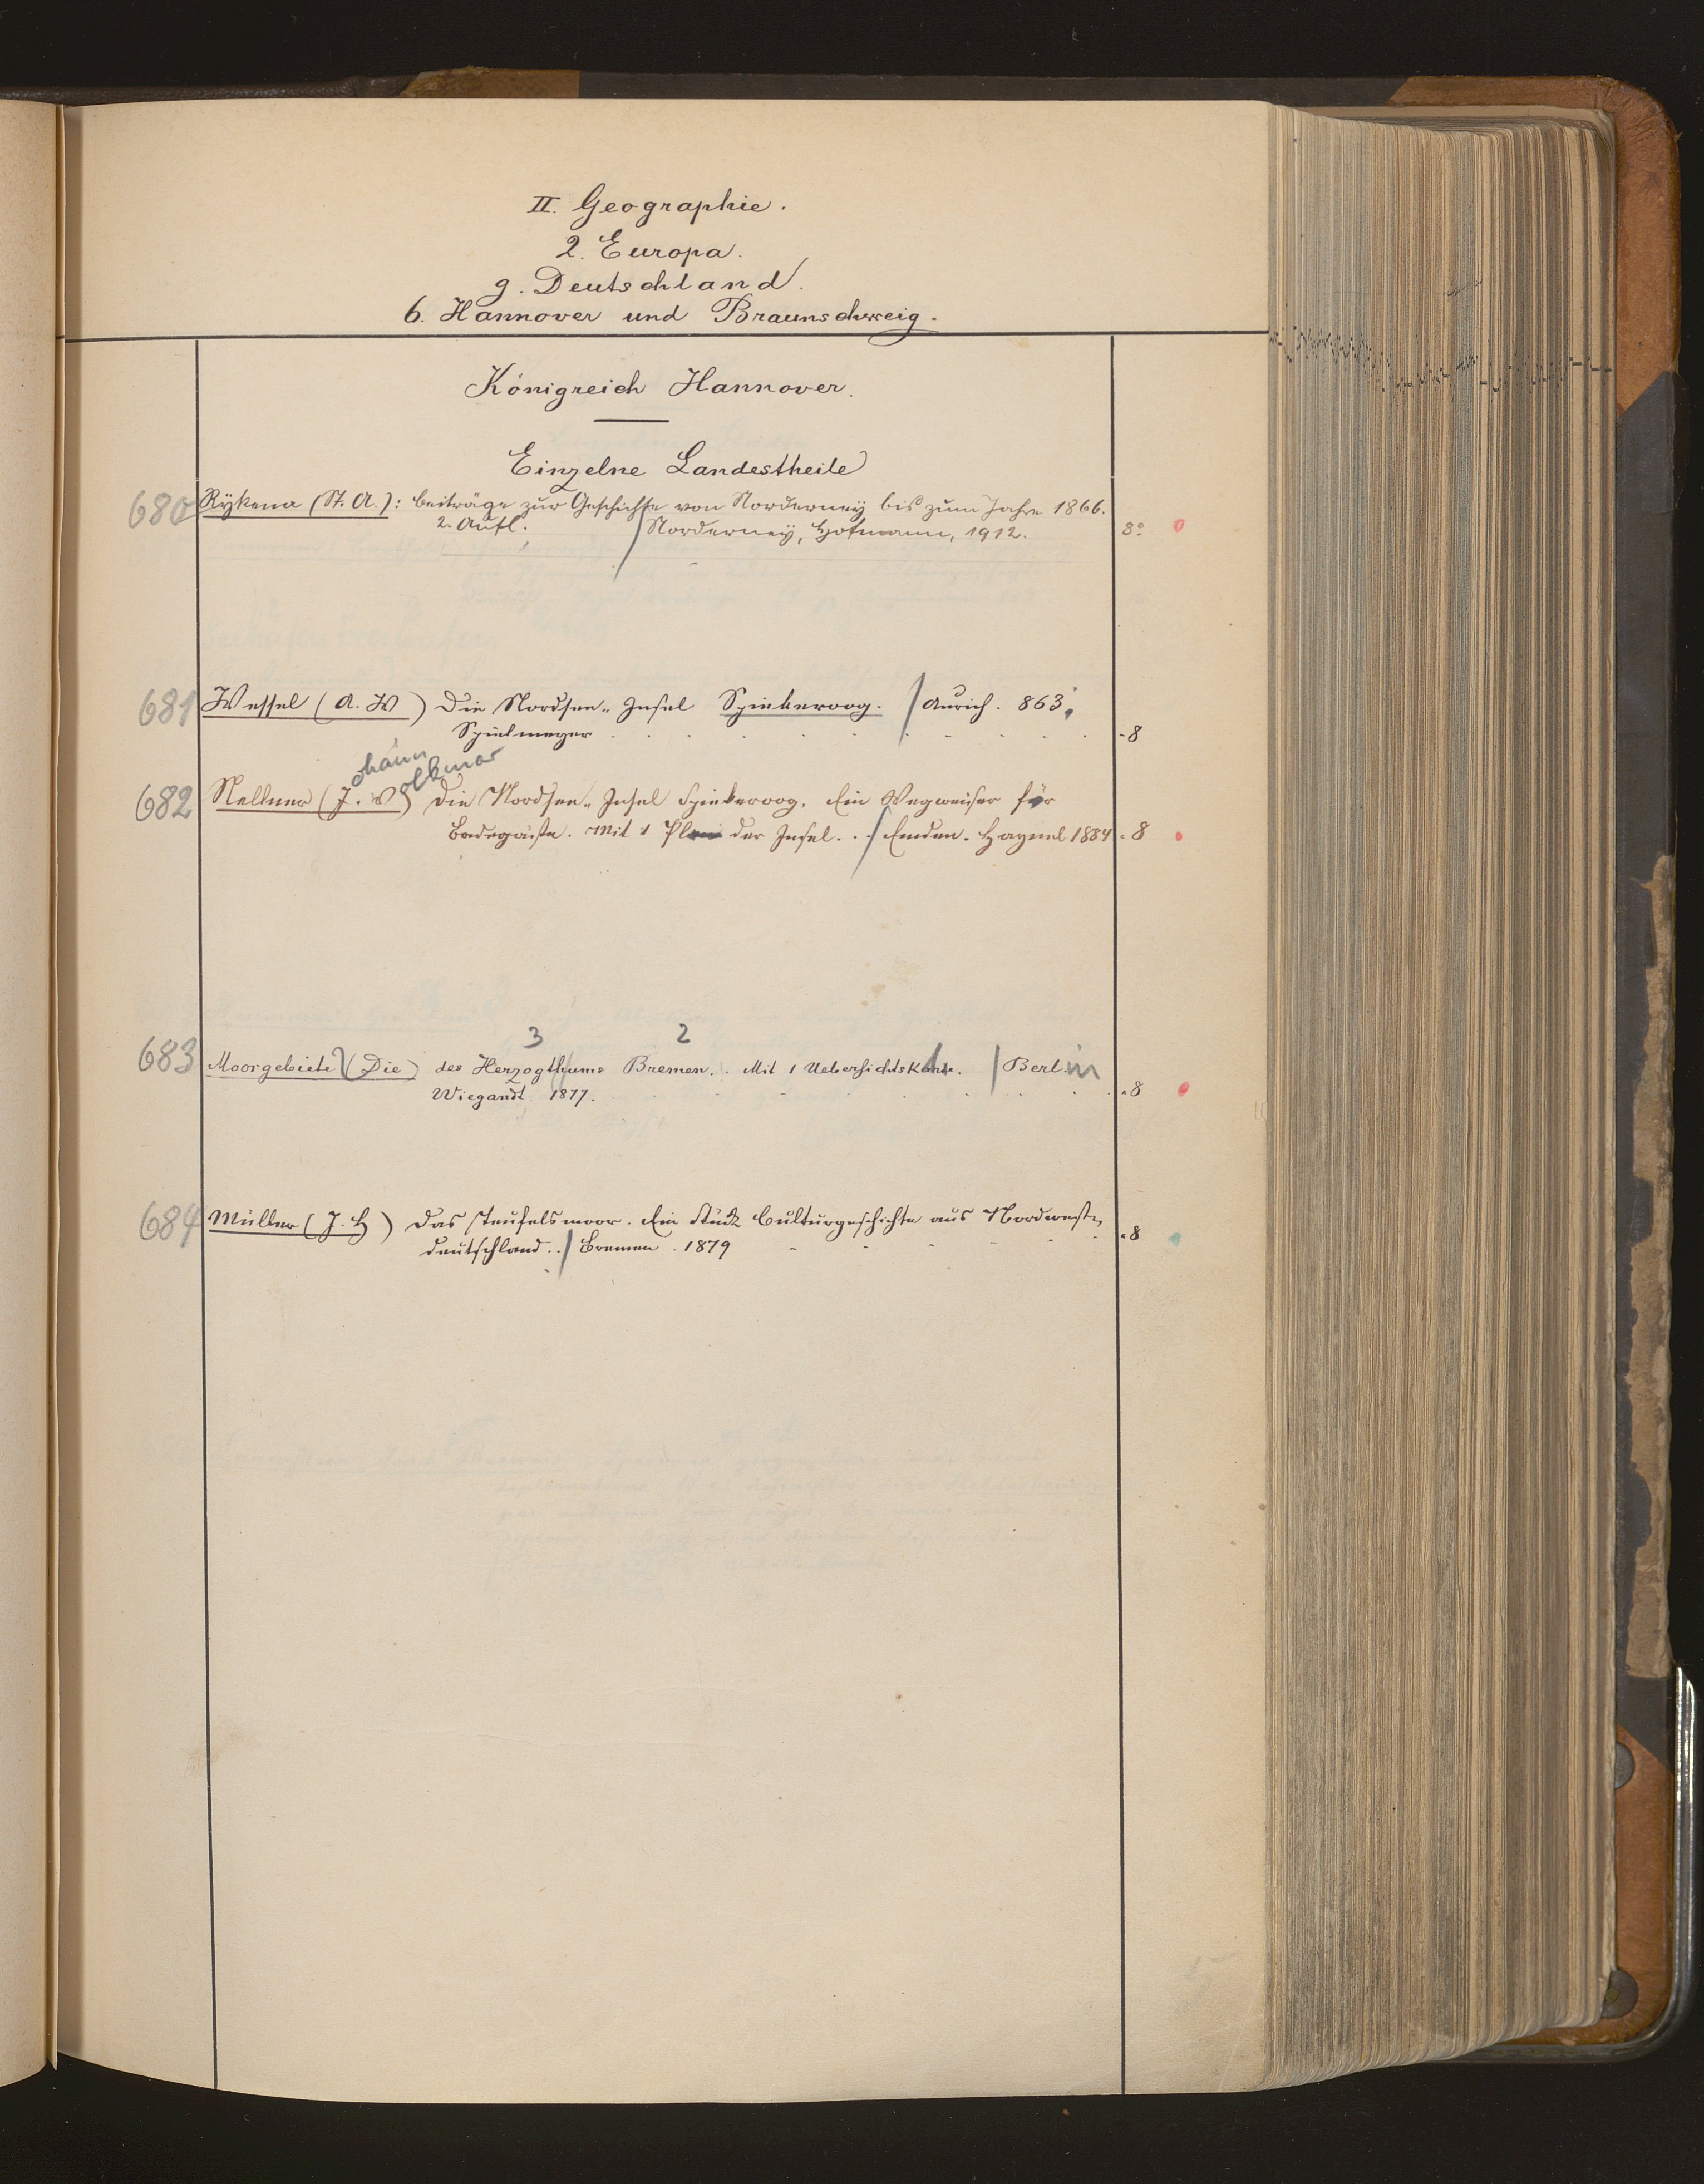 II. Geographie.
2. Europa.
g. Deutschland.
6. Hannover und Braunschweig.
Königreich Hannover.
Einzelne Landestheile
680 Rykena (St. A.): Beiträge zur Geschichte von Norderney bis zum Jahre 1866.
2. Aufl. / Norderney, Hofmann, 1912. 8°
681 Wessel (A. W) Die Nordsee-Insel Spiekeroog. / Aurich. 863.
Spielmeyer - 8
ohann olkmar
682 Nellner (J. V) Die Nordsee-Insel Spiekeroog. Ein Wegweiser für
Badegäste. Mit 1 Plan der Insel. . / Emden. Haynel 1884 - 8
3 2
683 Moorgebiete (Die) des Herzogthums Bremen. Mit 1 Uebersichtskarte. / Berlin
Wiegandt 1877. - 8
684 Müller (J. H) Das Teufelsmoor. Ein Stück Culturgeschichte aus Nordwest-
deutschland. . / Bremen. 1879 - 8